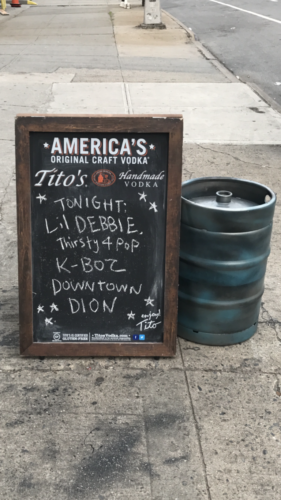 AMERICA'S
ORIGINAL CRAFT VODKA
Tito's. Handmade
VODKA
TONIGHT:
L'il DEBBIE.
Thirsty 4 Pop
K-BOZ
DOWNTOWN
DION
enjoy!
Tito